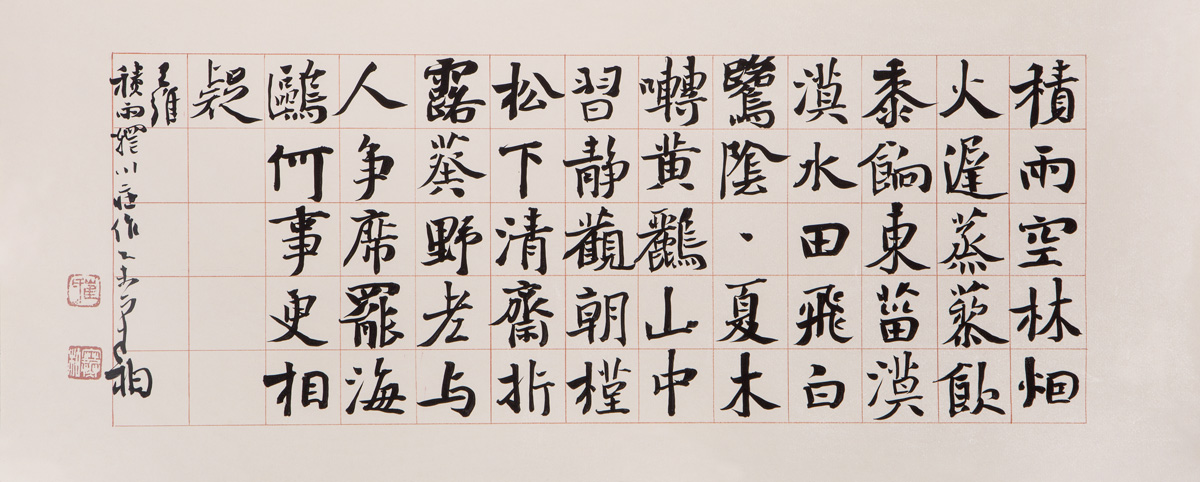 積雨空林烟
火遲蒸藜飲
黍餉東菑漠
漠水田飛白
鷺陰、夏木
囀黄鸝山中
習静觀朝槿
松下清齋折
露葵野老与
人争席罷海
鷗何事更相
疑
王維
積雨輞川莊作乙未